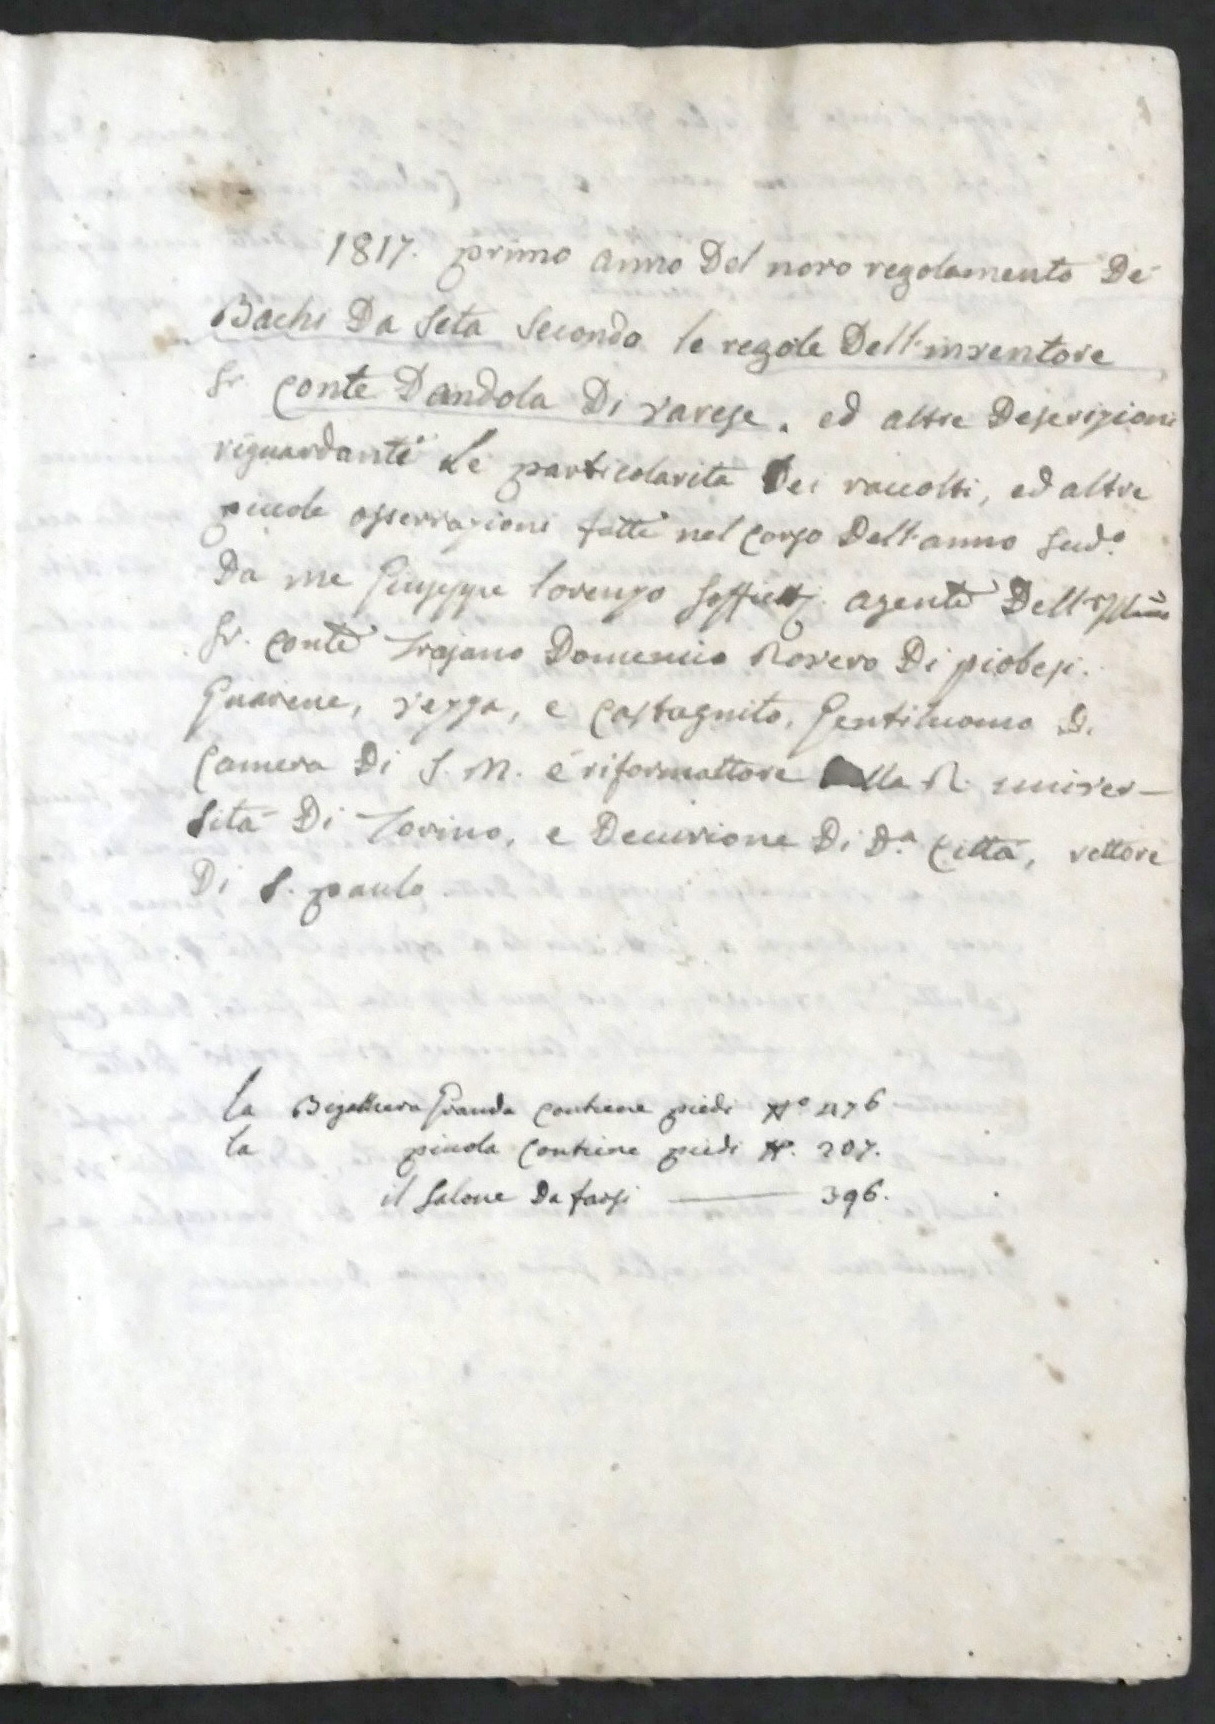 1817. primo anno Del novo regolamento De
Bachi Da Seta Secondo le regole Dell'inventore
Sr. Conte Dandola Di varese. ed altre Descrizioni
riguardanti Le particolarità Dei raccolti, ed altre
picole osservazioni fatte nel Corso Dell'anno Sud.o
Da me Giuseppe Lorenzo agente Dell'Ill.mo
Sr. Conte Trajano Domenico Rovero Di piobesi.
Guarene, vezza, e Castagnito, Gentiluomo Di
Camera Di S. M. é riformattore alla R. univer-
sità Di Torino, e Decurione Di D.a Città, rettore
Di S. paulo
la Bigattiera Granda Contiene piedi N.o 476
la picola Contiene piedi N. 207.
il Salone Da farsi — 396.